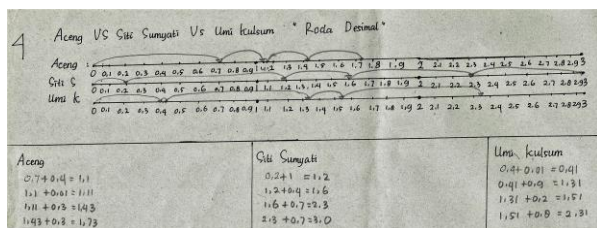 4 Aceng VS Siti Sumyati Vs Umi kulsum " Roda Desimal "
Aceng :
0 0,1 0.2 0.3 0.4 0.5 0.6 0.7 0.8 0.9 1 1.2 1.3 1.4 1.5 1.6 1.7 1.8 1.9 2 2.1 2.2 2.3 2.4 2.5 2.6 2.7 2.8 2.9 3
Siti S
0 0.1 0.2 0.3 0.4 0.5 0.6 0.7 0.8 0.9 1 1.1 1.2 1.3 1.4 1.5 1.6 1.7 1.8 1.9 2 2.1 2.2 2.3 2.4 2.5 2.6 2.7 2.8 2.9 3
Umi K
0 0.1 0.2 0.3 0.4 0.5 0.6 0.7 0.8 0.9 1 1.1 1.2 1.3 1.4 1.5 1.6 1.7 1.8 1.9 2 2.1 2.2 2.3 2.4 2.5 2.6 2.7 2.8 2.9 3
Aceng
0.7+0.4 = 1,1
1,1 +0,01 = 1,11
1,11 +0,3 = 1,43
1,43 +0,3 = 1,73
Siti Sumyati
0.2+1 = 1,2
1,2+0,4 = 1,6
1,6 +0,7 = 2,3
2,3 +0,7 = 3,0
Umi kulsum
0,4+0,01 = 0,41
0,41 +0,9 = 1,31
1,31 +0,2 = 1,51
1,51 +0,8 = 2,31